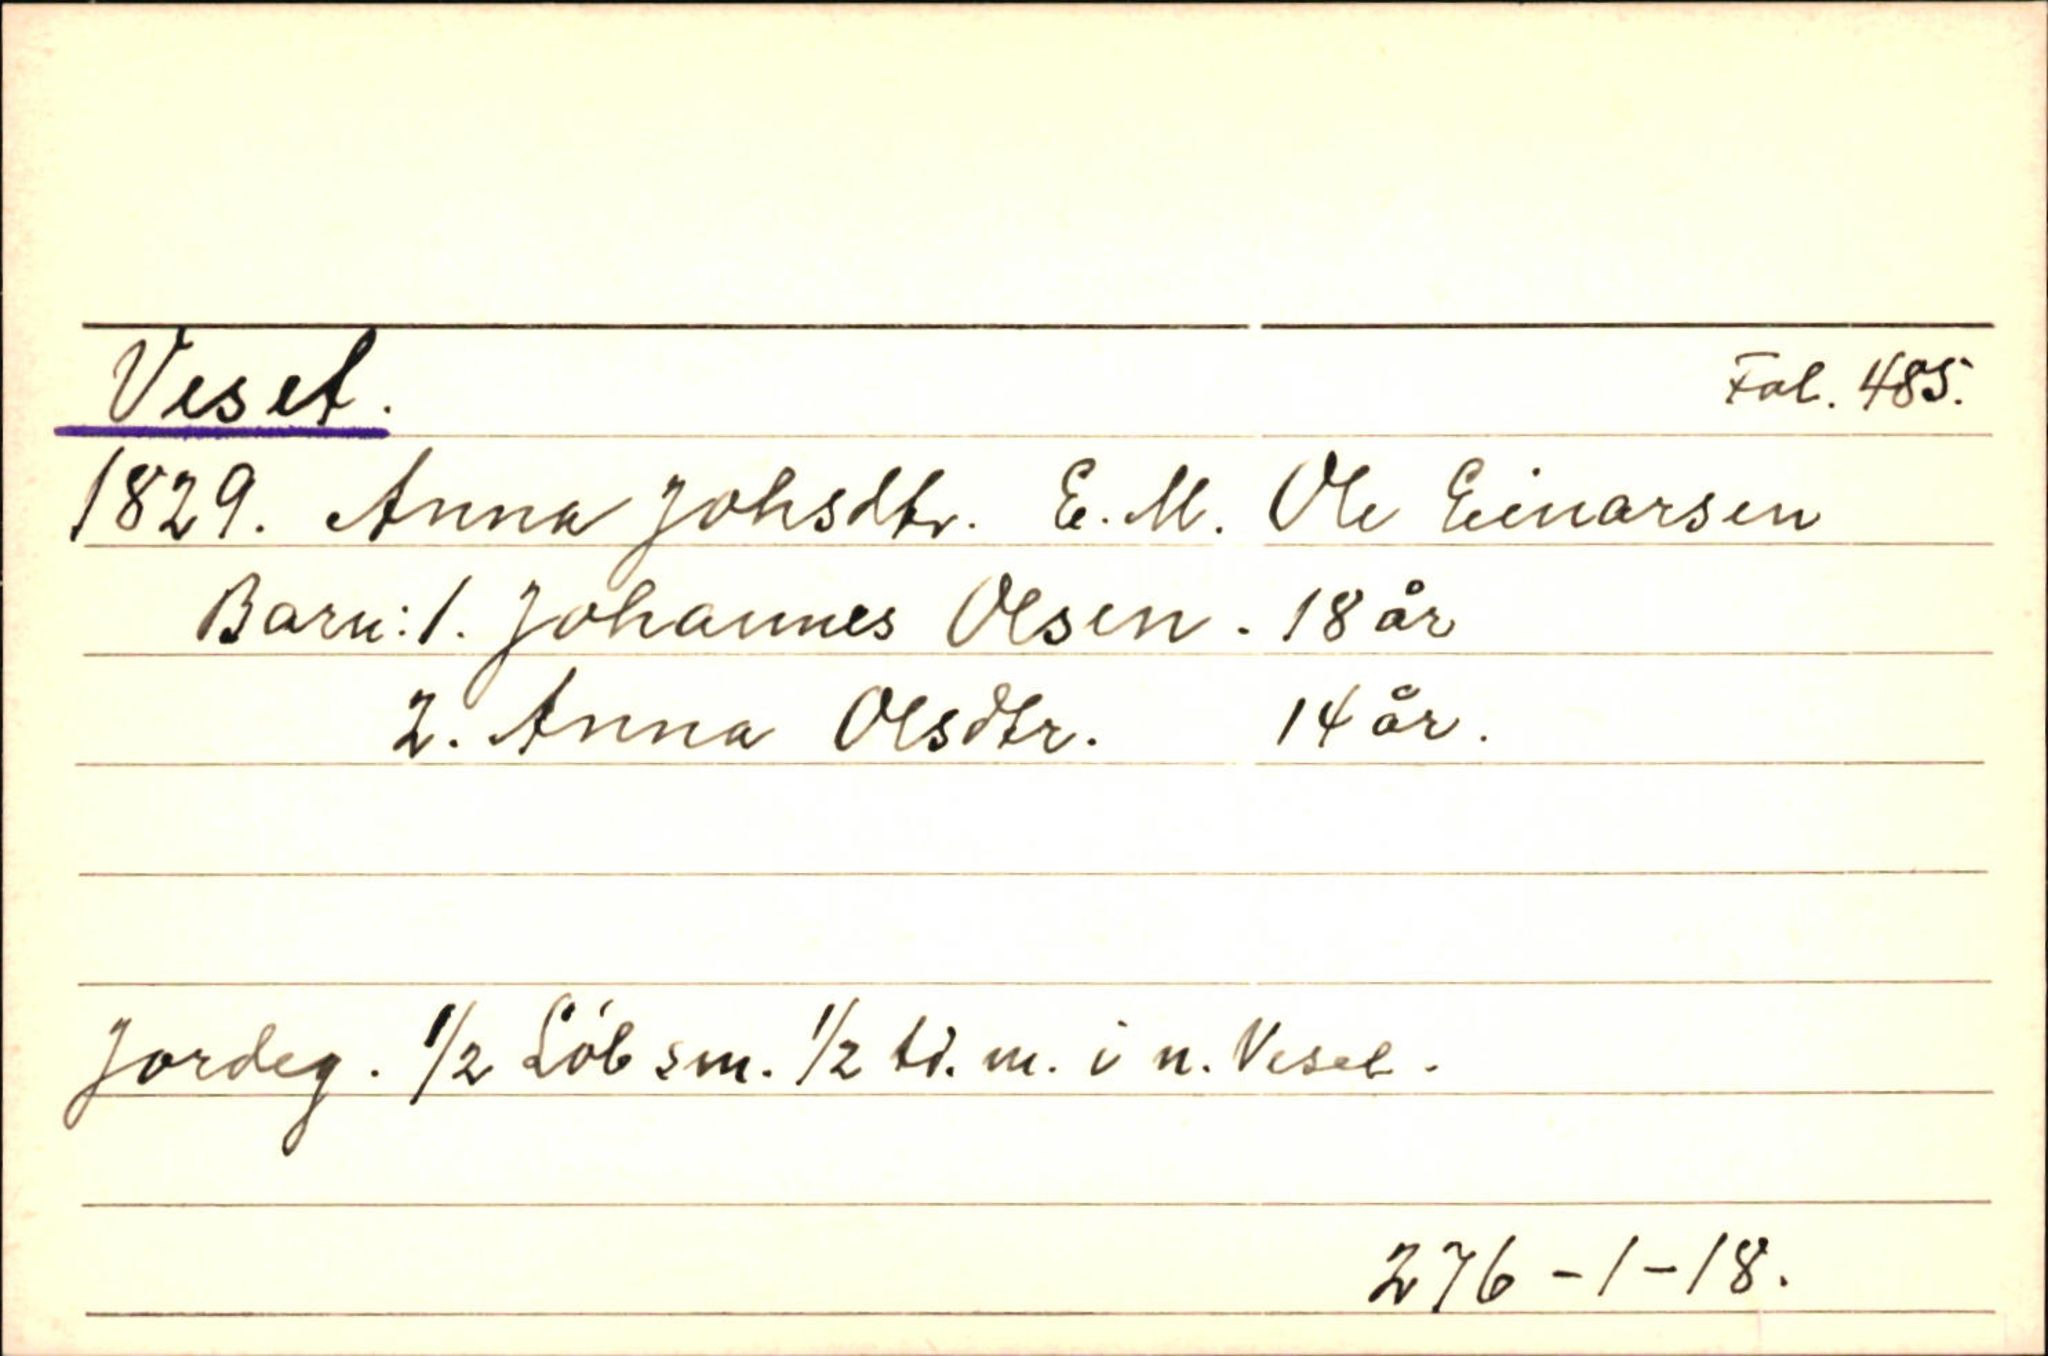 Veset. Fol. 485.
1829. Anna Johsdtr. E. M. Ole Einarsen
Barn: 1. Johannes Olsen. 18 år
2. Anna Olsdtr. 14 år.
Jordeg. 1/2 Löb sm. 1/2 td. m. i n. Veset.
276-1-18.